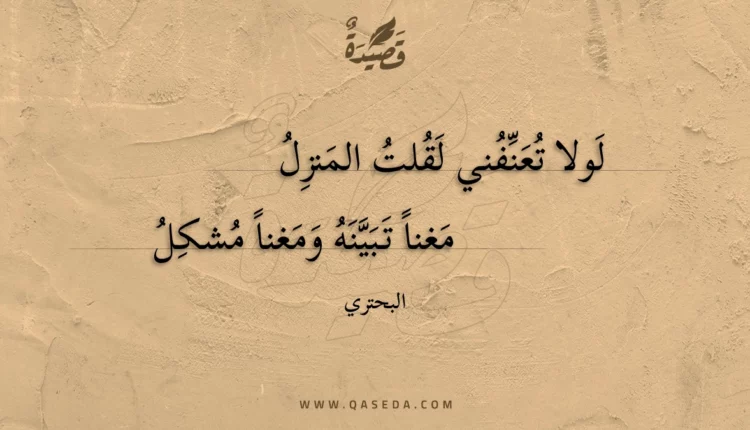 قَصِيدَةٌ
لَولا تُعَنِّفُني لَقُلتُ المَنزِلُ
مَغناً تَبَيَّنَهُ وَمَغناً مُشكِلُ
البحتري
WWW.QASEDA.COM